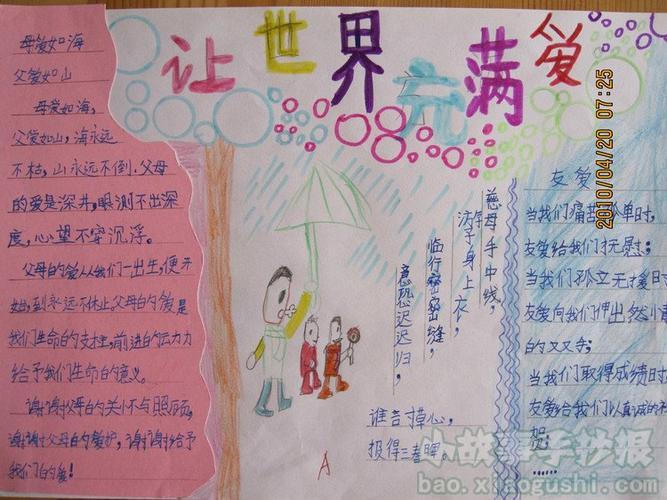 让世界充满爱
母爱如海
父爱如山
母爱如海,
父爱如山,海永远
不枯,山永远不倒.父母
的爱是深井,眼测不出深
度,心望不穿沉浮。
父母的爱从我们一出生,便开
始,到永远不休止.父母的爱是
我们生命的支柱,前进的动力
给予我们生命的意义。
谢谢父母的关怀与照顾,
谢谢父母的爱护,谢谢给予
我们的爱!
慈母手中线,
游子身上衣,
临行密密缝,
意恐迟迟归,
谁言寸草心,
报得三春晖。
A
友爱
当我们痛苦孤单时,
友爱给我们抚慰;
当我们孤立无援时
友爱向我们伸出
的双手;
当我们取得成绩时
友爱给我们以真诚的祝
贺;
......
2010/04/20 07:25
小故事手抄报
bao.xiaogushi.com